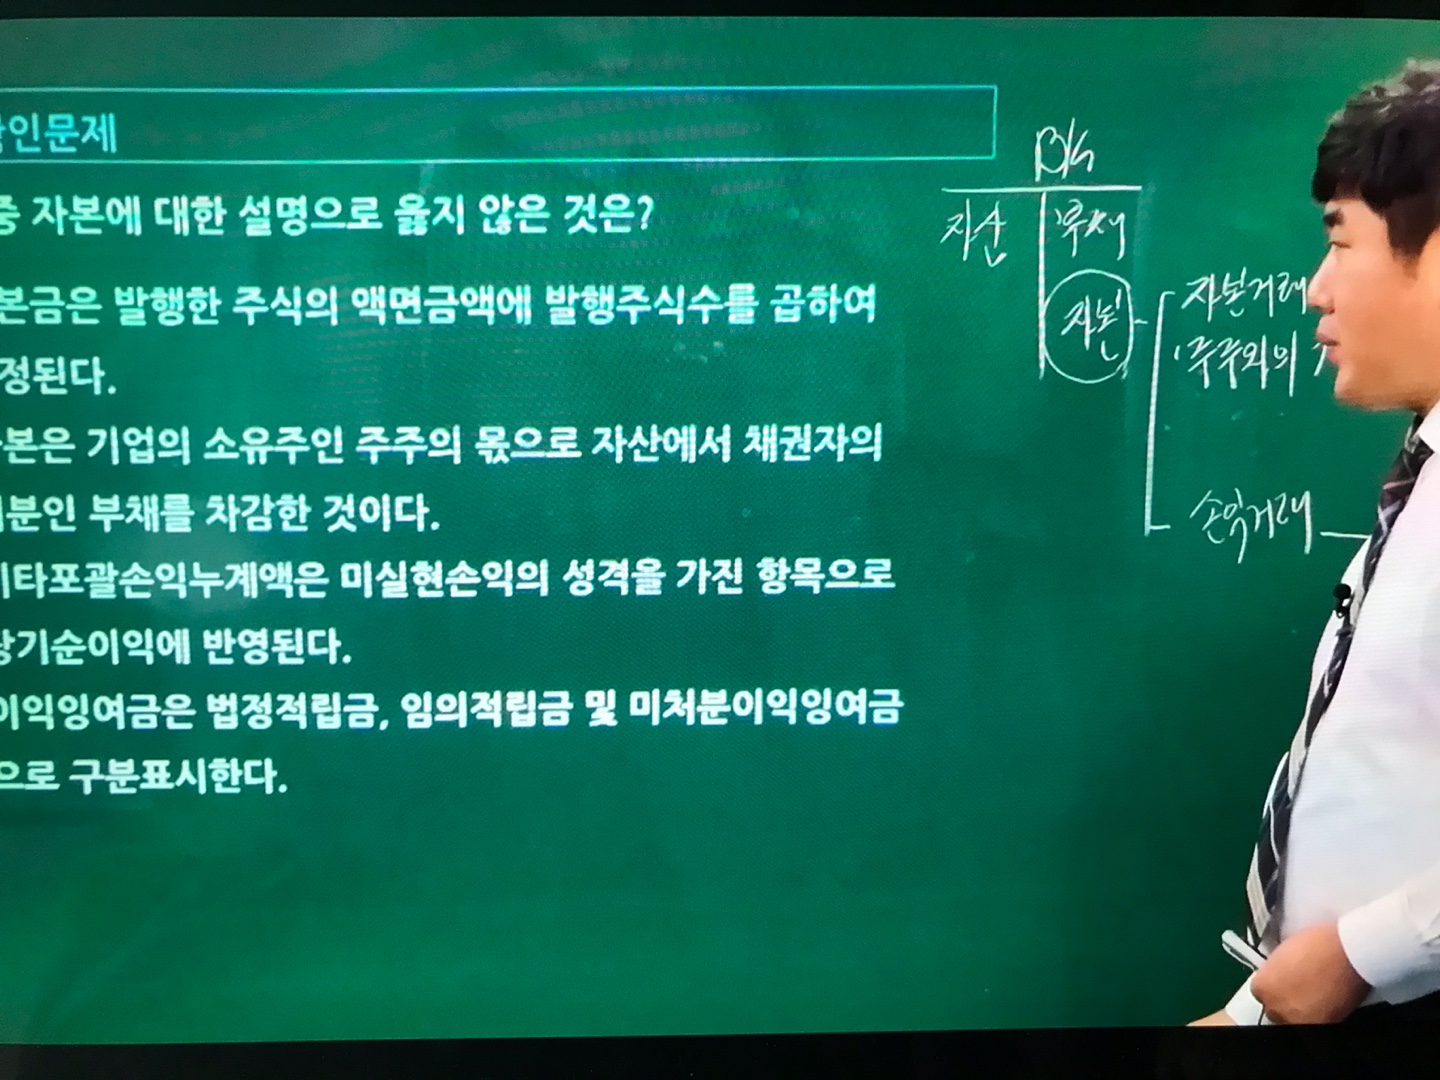 인문제
중 자본에 대한 설명으로 옳지 않은 것은?
본금은 발행한 주식의 액면금액에 발행주식수를 곱하여
정된다.
본은 기업의 소유주인 주주의 몫으로 자산에서 채권자의
분인 부채를 차감한 것이다.
타포괄손익누계액은 미실현손익의 성격을 가진 항목으로
당기순이익에 반영된다.
이익잉여금은 법정적립금, 임의적립금 및 미처분이익잉여금
으로 구분표시한다.
B/S
자산 부채
자본
자본거래
주주와의
손익거래